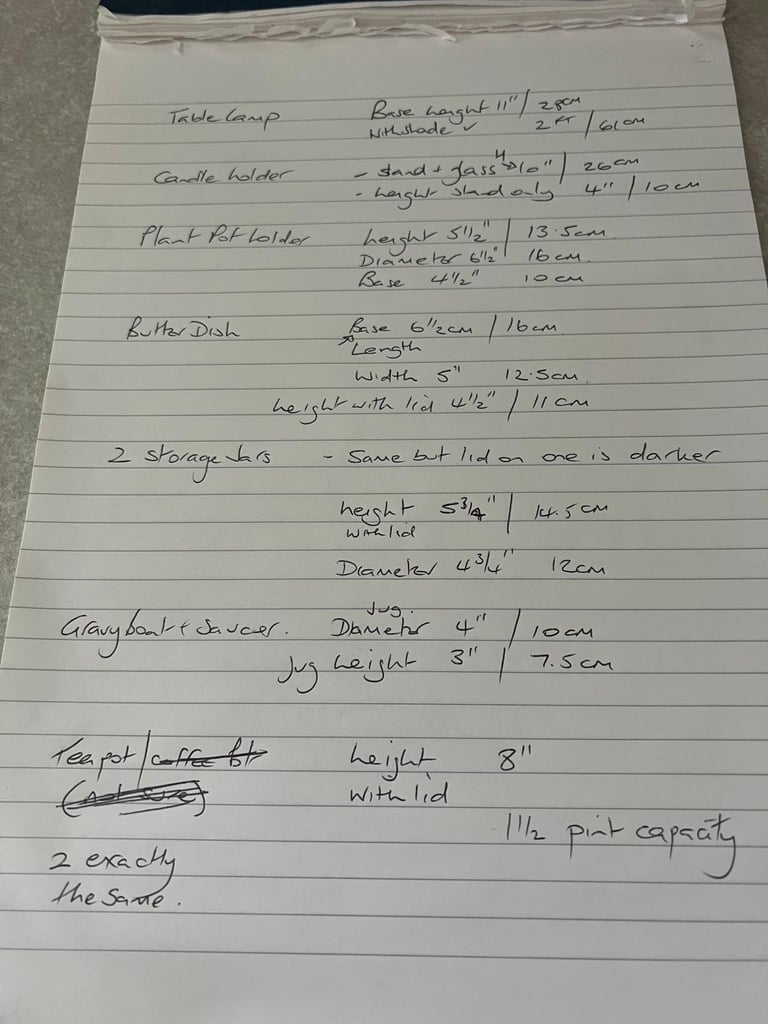 Table Lamp Base height 11" / 28cm
With shade ✓ 2 FT / 61cm
Candle holder - stand + glass H → 10" / 26cm
- height stand only 4" / 10cm
Plant Pot holder height 5 1/2" / 13.5cm.
Diameter 6 1/2" 16cm.
Base 4 1/2" 10cm
Butter Dish Base 6 1/2cm / 16cm.
Length
Width 5" 12.5cm.
height with lid 4 1/2" / 11cm
2 storage Jars - Same but lid on one is darker
height 5 3/4" / 14.5cm
with lid
Diameter 4 3/4" 12cm
Jug.
Gravy boat + Saucer. Diameter 4" / 10cm
Jug height 3" / 7.5cm
Teapot / coffee height 8"
(not sure) with lid
1 1/2 pint capacity
2 exactly
the same.